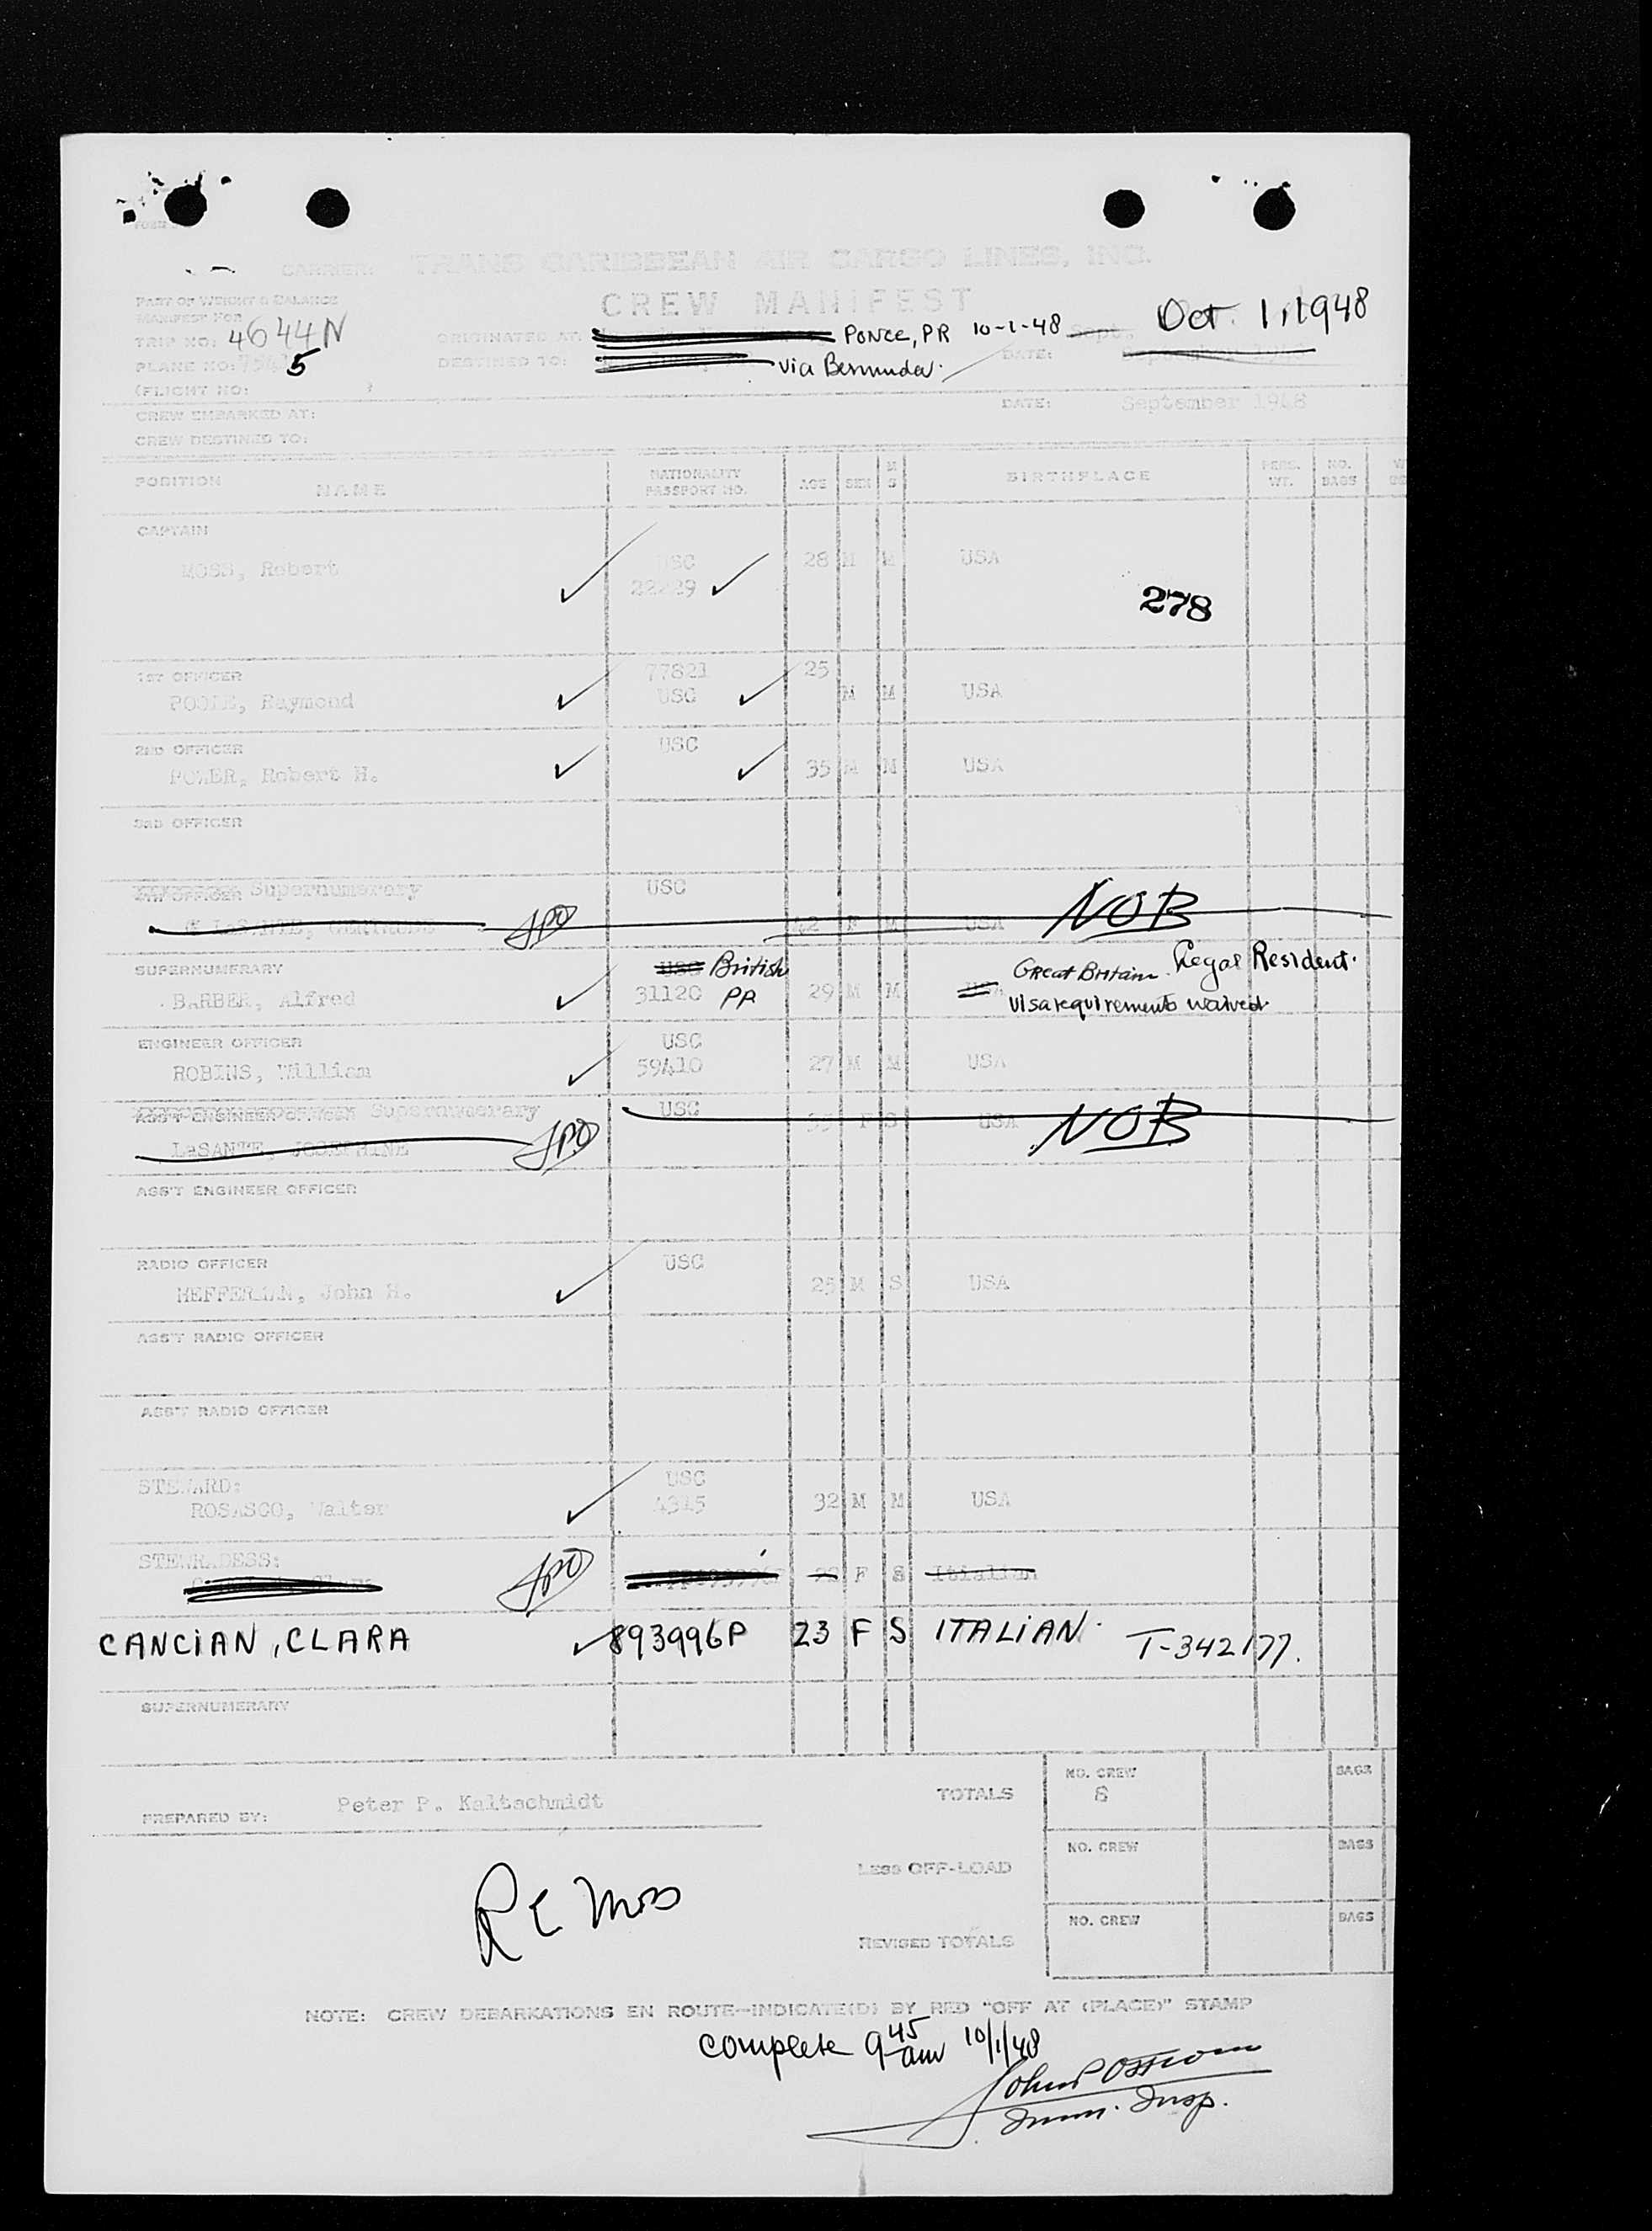 CARRIER: TRANS CARIBBEAN AIR CARGO LINES, INC.
PART OF WEIGHT & BALANCE
MANIFEST FOR
CREW MANIFEST
TRIP NO: 4644N
ORIGINATED AT: PONCE, PR 10-1-48 Sept. Oct. 1, 1948
PLANE NO: 5
DESTINED TO: via Bermuda.
DATE:
(FLIGHT NO: )
CREW EMBARKED AT:
DATE: September 1948
CREW DESTINED TO:
POSITION NAME NATIONALITY PASSPORT NO. AGE SEX M S BIRTHPLACE PERS. WT. NO. BAGS
CAPTAIN
MOSS, Robert USC 28 M M USA
278
1ST OFFICER 77821 25
Raymond USC M M USA
2ND OFFICER USC
POWER, Robert H. 35 M M USA
3RD OFFICER
4TH OFFICER Supernumerary USC
LaSANTE, GERTRUDE JPO 42 F M USA NOB
SUPERNUMERARY USC British Great Britain. Legal Resident.
BARBER, Alfred 31120 PR 29 M M USA visa requirements waived.
ENGINEER OFFICER USC
ROBINS, William 59410 27 M M USA
ASS'T ENGINEER OFFICER Supernumerary USC F S USA NOB
LaSANTE, JOSEPHINE JPO
ASS'T ENGINEER OFFICER
RADIO OFFICER USC
HEFFERNAN, John H. 25 M S USA
ASS'T RADIO OFFICER
ASS'T RADIO OFFICER
STEWARD: USC
ROSASCO, Walter 4315 32 M M USA
STEWRADESS: JPO F S Itialian
CANCIAN, CLARA 893996P 23 F S ITALIAN. T-342177.
SUPERNUMERARY
TOTALS NO. CREW 8 BAGS
PREPARED BY: Peter P. Kaltschmidt
LESS OFF-LOAD NO. CREW BAGS
R E Moss
REVISED TOTALS NO. CREW BAGS
NOTE: CREW DEBARKATIONS EN ROUTE—INDICATE(D) BY RED "OFF AT (PLACE)" STAMP
complete 9 45 am 10/1/48
Imm. Insp.